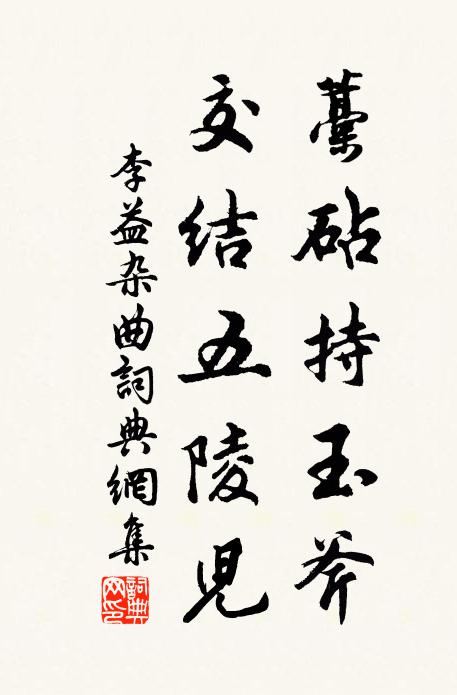 藁砧持玉斧
交结五陵児
李益杂曲詞典網集
詞典网印